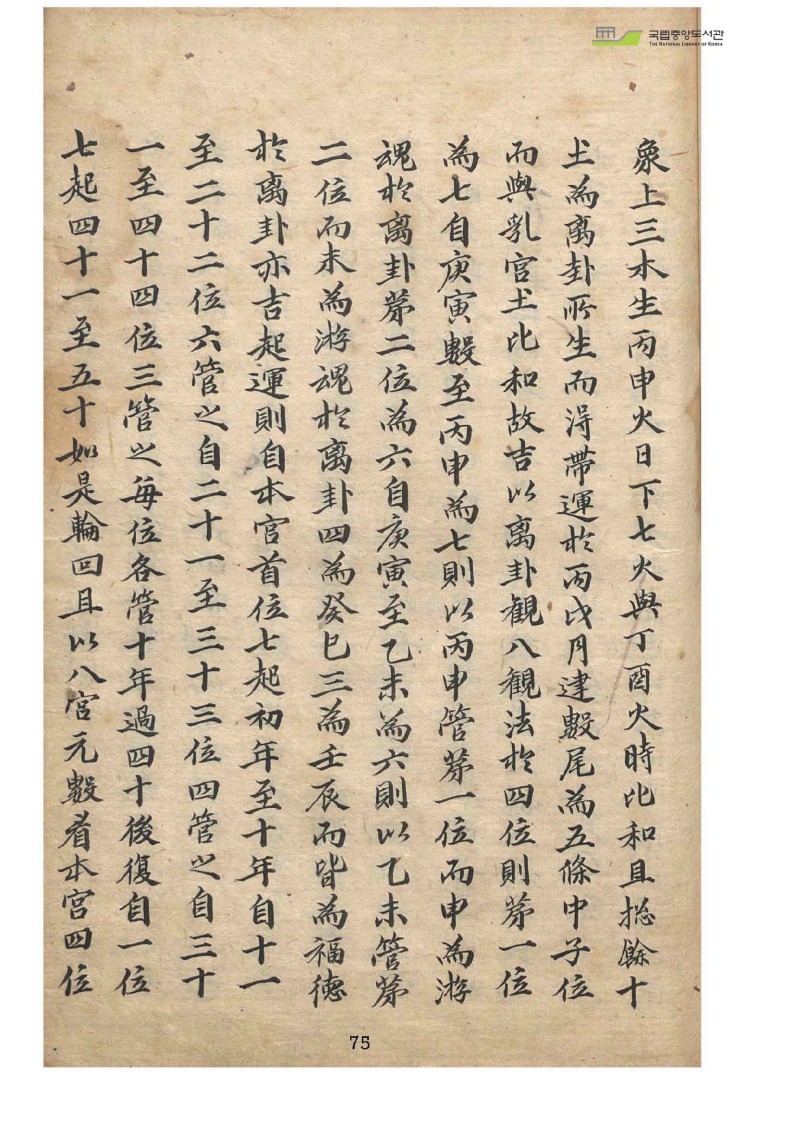 국립중앙도서관
THE NATIONAL LIBRARY OF KOREA
象上三木生丙申火日下七火與丁酉火時比和且摠餘十
土為离卦所生而淂帶運於丙戌月建數尾為五條中子位
而與乳宮土比和故吉以离卦觀八觀法於四位則苐一位
為七自庚寅數至丙申為七則以丙申管苐一位而申為游
魂於离卦苐二位為六自庚寅至乙未為六則以乙未管苐
二位而未為游魂於离卦四為癸巳三為壬辰而皆為福德
於离卦亦吉起運則自本宮首位七起初年至十年自十一
至二十二位六管之自二十一至三十三位四管之自三十
一至四十四位三管之每位各管十年過四十後復自一位
七起四十一至五十如是輪回且以八宮元數看本宮四位
75